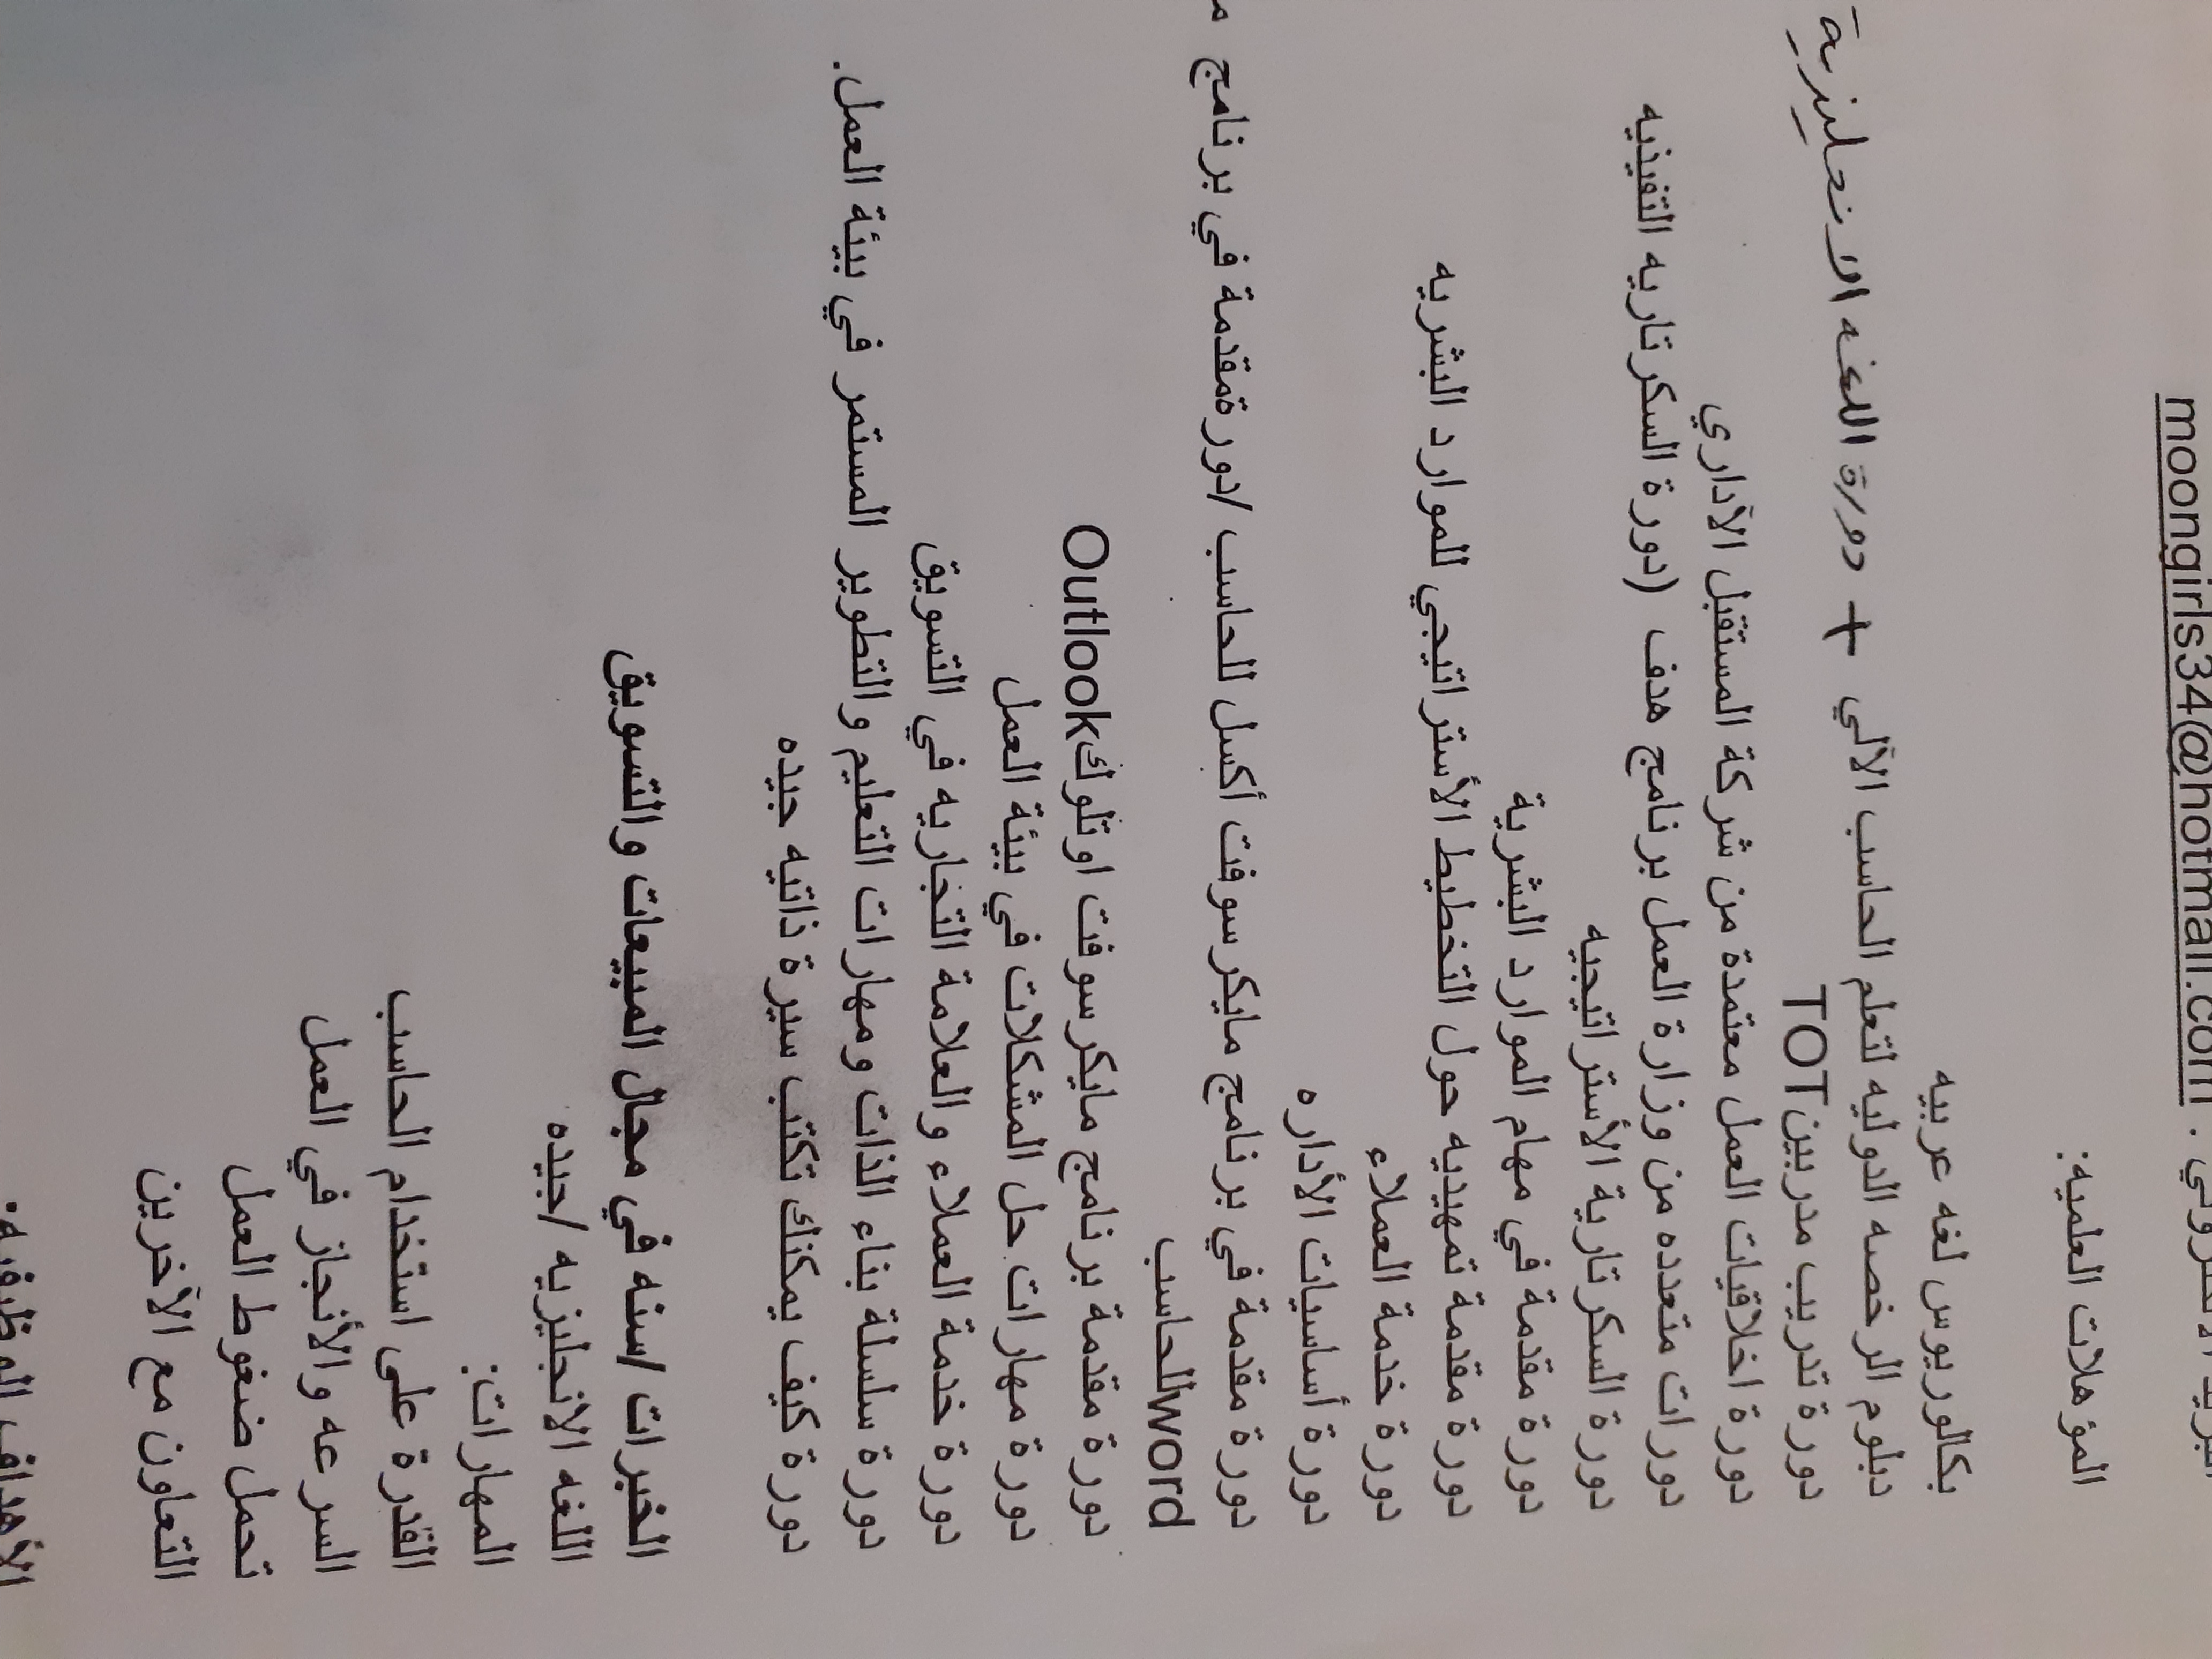 moongirls34@hotmail.com .
المؤهلات العلميه:
بكالوريوس لغه عربيه
دبلوم الرخصه الدوليه لتعلم الحاسب الآلي + دورة اللغه الانجليزية
دورة تدريب مدربينTOT
دورة اخلاقيات العمل معتمدة من شركة المستقبل الآداري
دورات متعدده من وزارة العمل برنامج هدف (دورة السكرتاريه التنفيذيه
دورة السكرتارية الأستراتيجيه
دورة مقدمة في مهام الموارد البشرية
دورة مقدمة تمهيديه حول التخطيط الأستراتيجي للموارد البشريه
دورة خدمة العملاء
دورة أساسيات الأداره
دورة مقدمة في برنامج مايكرسوفت أكسل للحاسب /دورةمقدمة في برنامج
wordللحاسب
دورة مقدمة برنامج مايكرسوفت اوتلوكOutlook
دورة مهارات حل المشكلات في بيئة العمل
دورة خدمة العملاء والعلامة التجاريه في التسويق
دورة سلسلة بناء الذات ومهارات التعليم والتطوير المستمر في بيئة العمل.
دورة كيف يمكنك تكتب سيرة ذاتيه جيده
الخبرات /سنه في مجال المبيعات والتسويق
اللغه الانجليزيه /جيده
المهارات:
القدرة على استخدام الحاسب
السرعه والأنجاز في العمل
تحمل ضغوط العمل
التعاون مع الآخرين
الأهداف الوظيفيه: